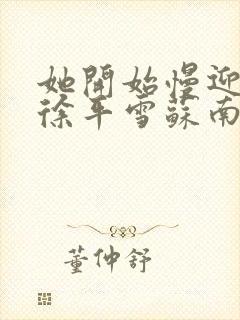 她開始慢迎
徐平雪蘇南
董仲舒